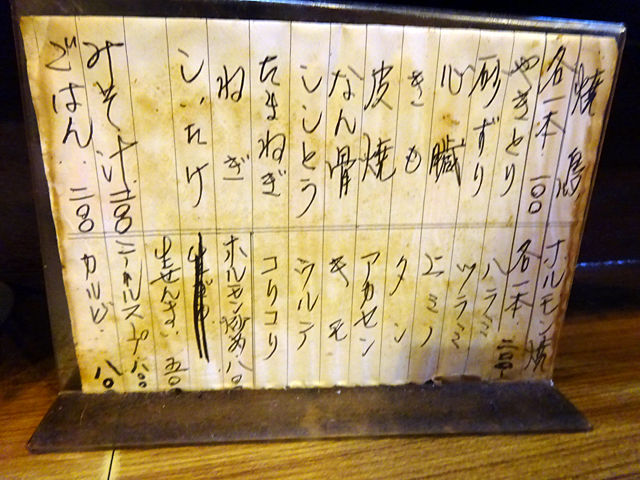 焼鳥
各一本 一〇〇
やきとり
砂ずり
心臓
きも
皮焼
なん骨
ししとう
たまねぎ
ねぎ
しいたけ
みそ汁 二〇〇
ごはん 二〇〇
ホルモン焼
各一本 二〇〇
ハラミ
ツラミ
ミノ
タン
アカセン
キモ
ウルテ
コリコリ
ホルモン炒め 八〇
生せんまい 五〇
テールスープ 八〇〇
カルビ 八〇